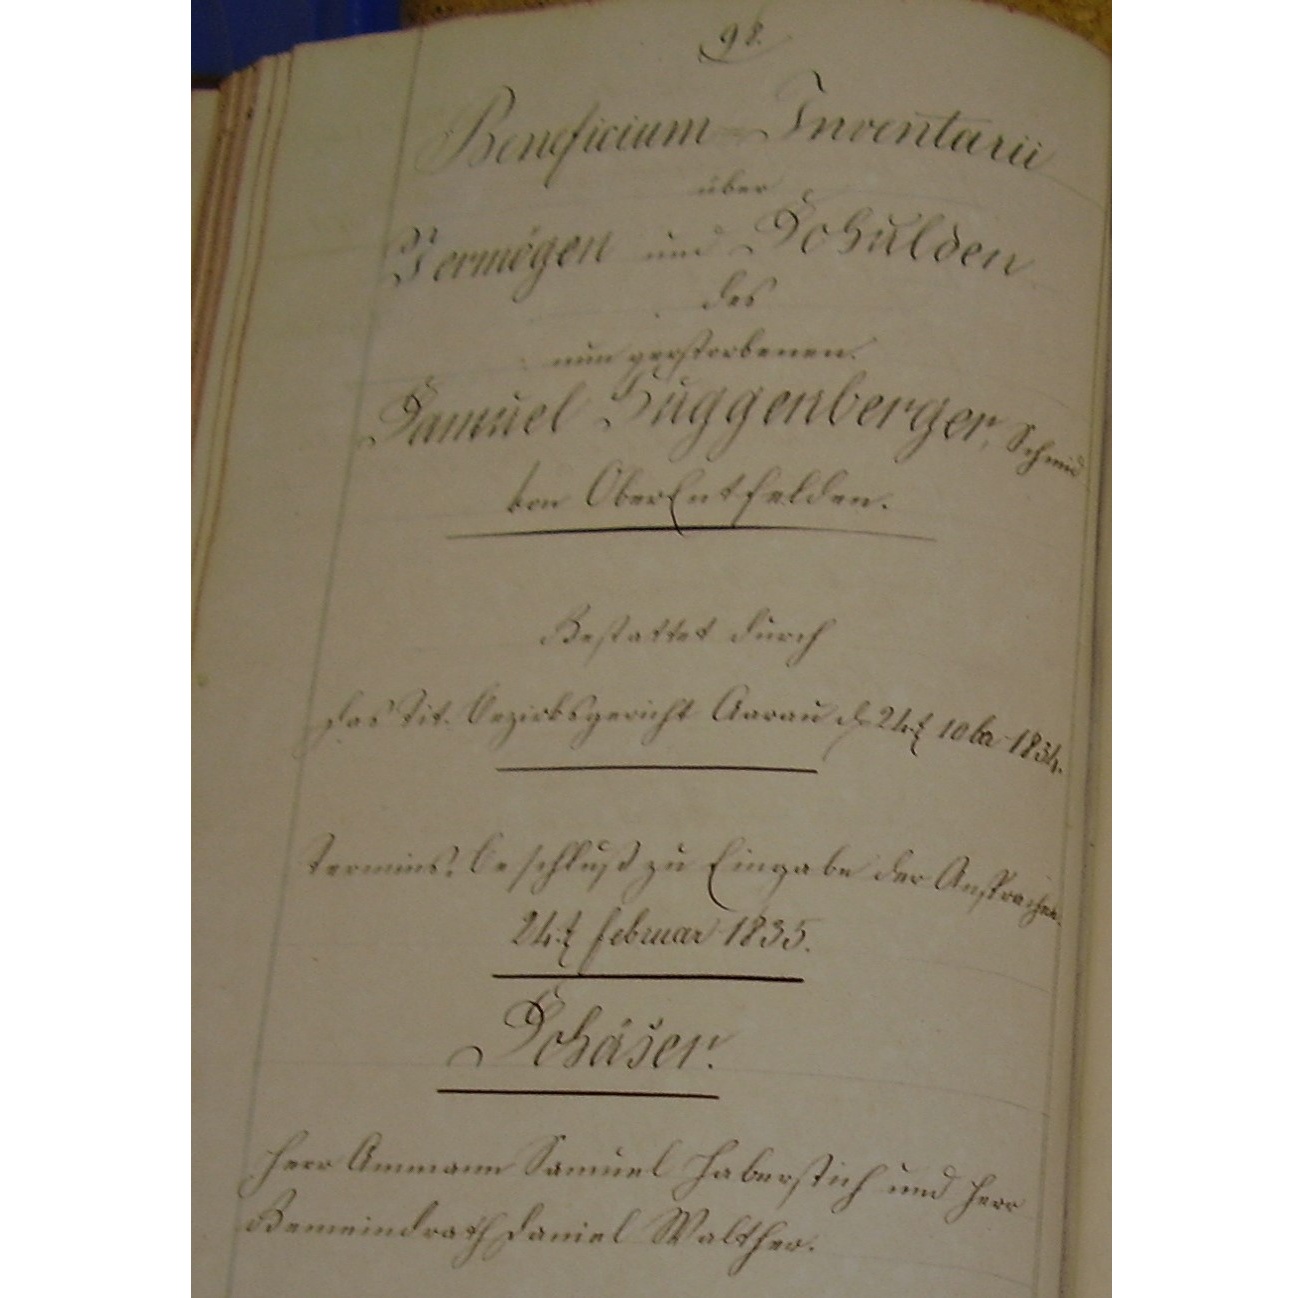 98.
Beneficium-Inventarii
über
Vermögen und Schulden
des
nun verstorbenen.
Samuel Huggenberger, Schmid
von OberEntfelden.
Gestattet durch
das Tit. Bezirksgericht Aarau d. 24.t 10br 1834.
Termins-Beschluß zu Eingabe der Ansprachen.
24.t februar 1835.
Schäzer.
Herr Ammann Samuel Haberstich und Herr
Gemeindrath Daniel Walther.